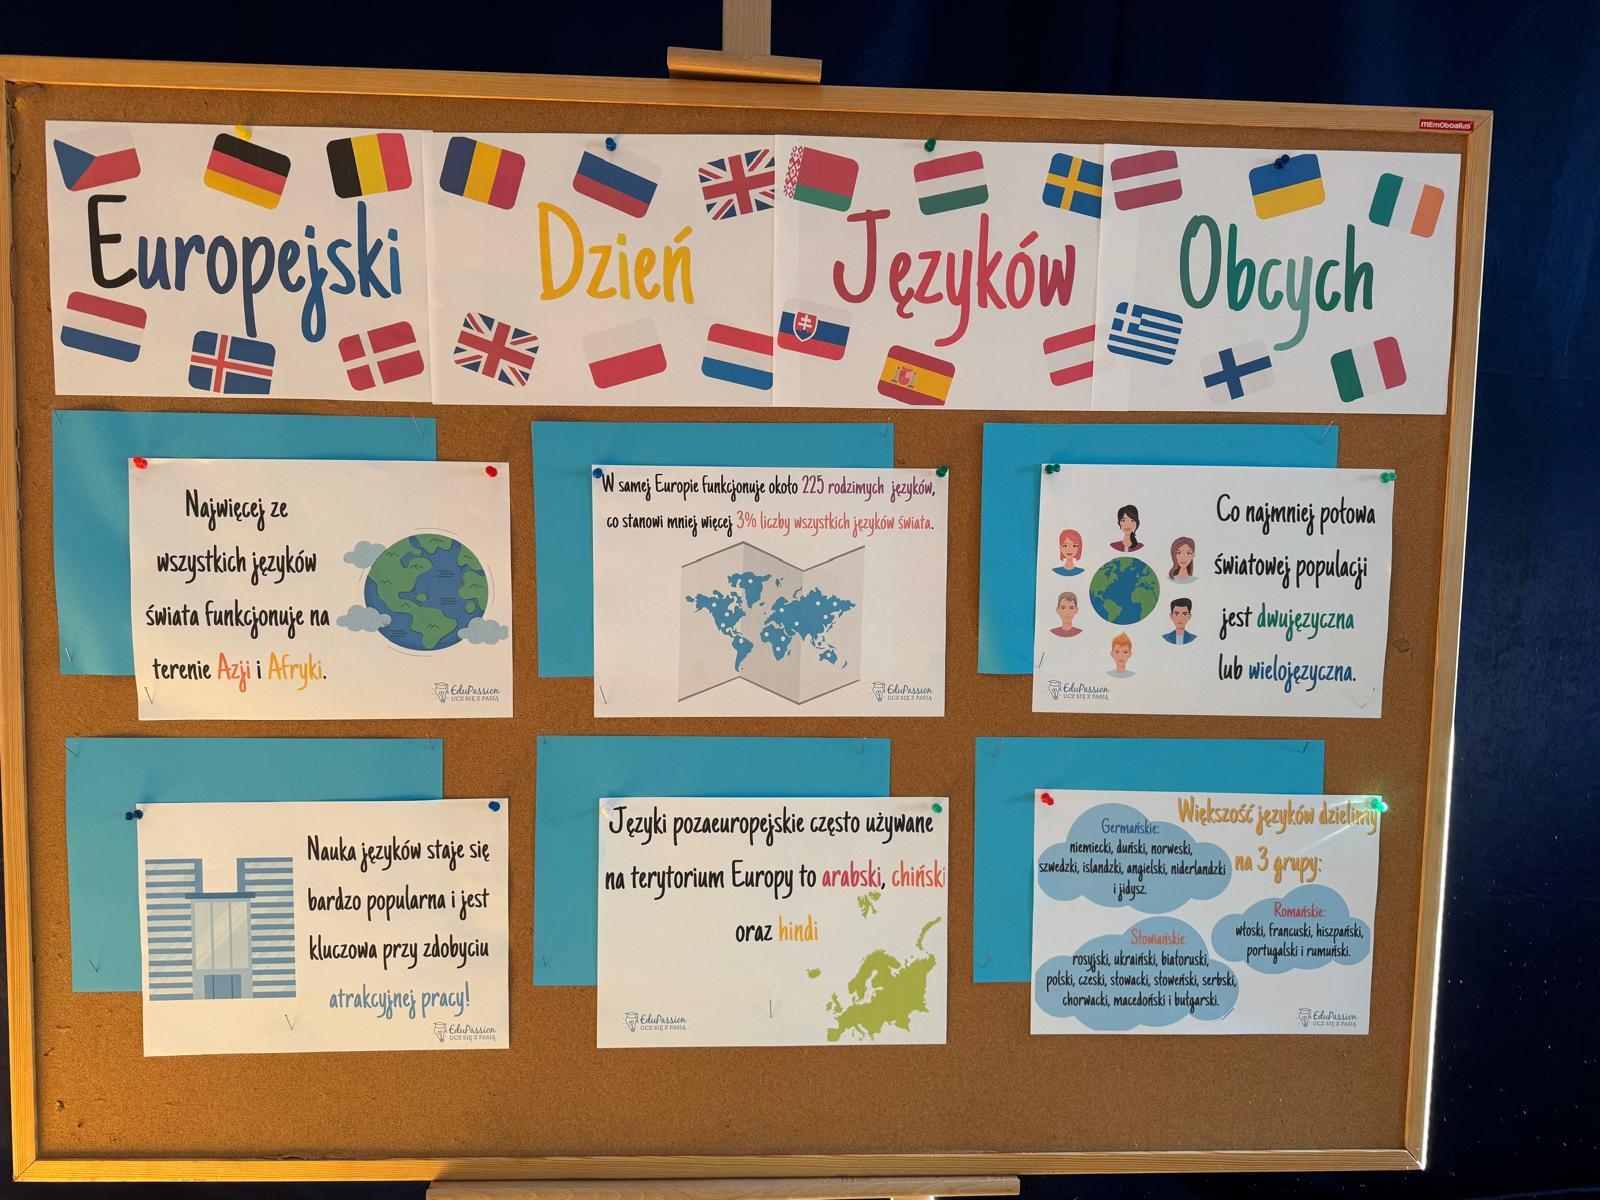 mEmOboaRdS
Europejski Dzień Języków Obcych
Najwięcej ze
wszystkich języków
świata funkcjonuje na
terenie Azji i Afryki.
EduPassion
UCZ SIĘ Z PASJĄ
W samej Europie funkcjonuje około 225 rodzimych języków,
co stanowi mniej więcej 3% liczby wszystkich języków świata.
EduPassion
UCZ SIĘ Z PASJĄ
Co najmniej połowa
światowej populacji
jest dwujęzyczna
lub wielojęzyczna.
EduPassion
UCZ SIĘ Z PASJĄ
Nauka języków staje się
bardzo popularna i jest
kluczowa przy zdobyciu
atrakcyjnej pracy!
EduPassion
UCZ SIĘ Z PASJĄ
Języki pozaeuropejskie często używane
na terytorium Europy to arabski, chiński
oraz hindi
EduPassion
UCZ SIĘ Z PASJĄ
Większość języków dzielimy
na 3 grupy:
Germańskie:
niemiecki, duński, norweski,
szwedzki, islandzki, angielski, niderlandzki
i jidysz.
Romańskie:
włoski, francuski, hiszpański,
portugalski i rumuński.
Słowiańskie:
rosyjski, ukraiński, białoruski,
polski, czeski, słowacki, słoweński, serbski,
chorwacki, macedoński i bułgarski.
EduPassion
UCZ SIĘ Z PASJĄ